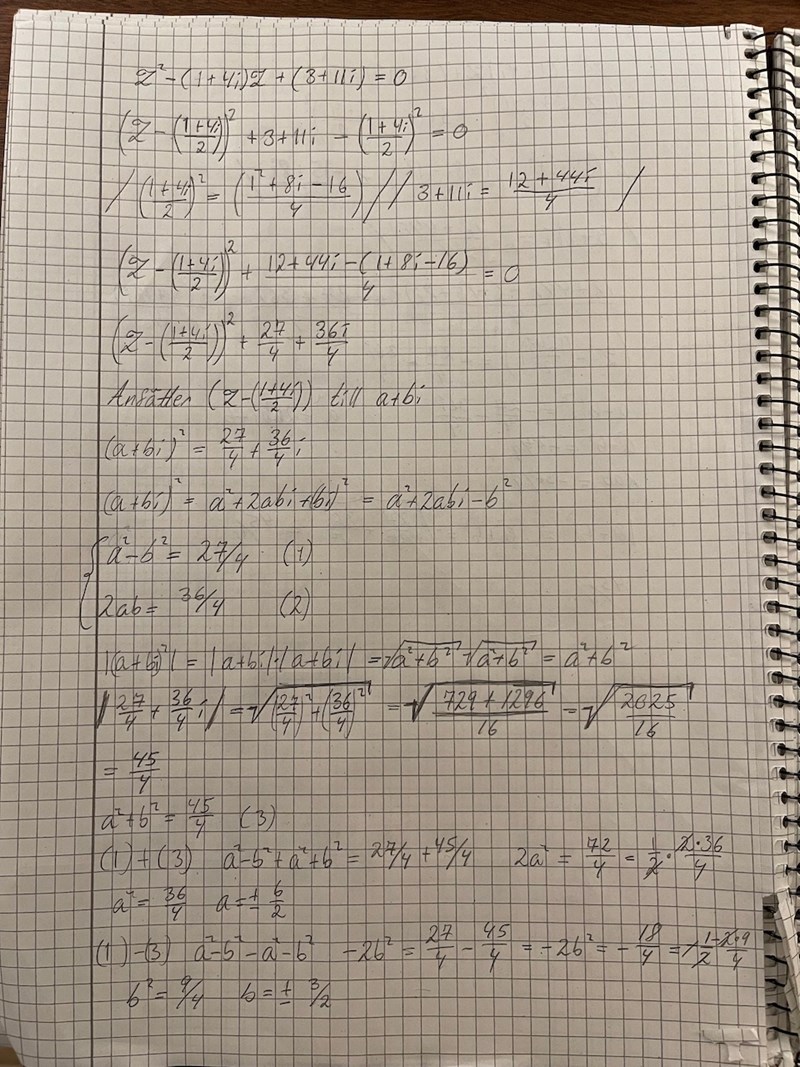 z² - (1+4i)z + (3+11i) = 0
(z - ((1+4i)/2))² + 3+11i - ((1+4i)/2)² = 0
/ ((1+4i)/2)² = ((1²+8i-16)/4) // 3+11i = (12+44i)/4 /
(z - ((1+4i)/2))² + (12+44i-(1+8i-16))/4 = 0
(z - ((1+4i)/2))² + 27/4 + 36i/4
Ansätter (z-((1+4i)/2)) till a+bi
(a+bi)² = 27/4 + 36/4 i
(a+bi)² = a²+2abi+(bi)² = a²+2abi-b²
{ a²-b² = 27/4 (1)
2ab = 36/4 (2)
|(a+bi)²| = |a+bi|·|a+bi| = √(a²+b²) √(a²+b²) = a²+b²
|27/4 + 36/4 i| = √((27/4)²+(36/4)²) = √((729+1296)/16) = √(2025/16)
= 45/4
a²+b² = 45/4 (3)
(1)+(3) a²-b²+a²+b² = 27/4+45/4 2a² = 72/4 = 1/2 · (2·36)/4
a² = 36/4 a = ± 6/2
(1)-(3) a²-b²-a²-b² -2b² = 27/4 - 45/4 = -2b² = -18/4 = /1/2 (-2·9)/4
b² = 9/4 b = ± 3/2